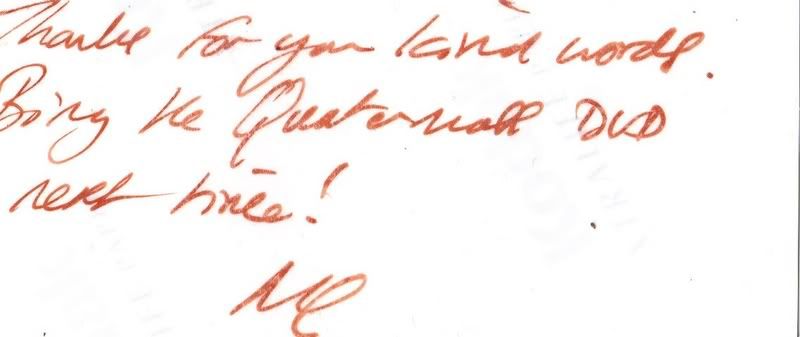 Thanks for your kind words.
Bring the Quatermass DVD
next time!
MG